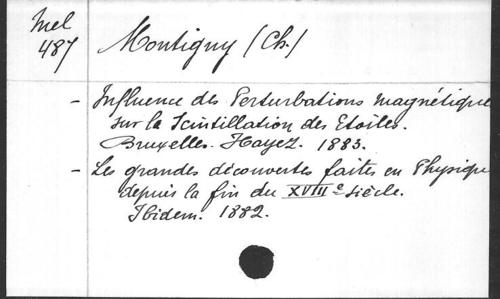 Mel
487
Montigny (Ch.)
- Influence des Perturbations magnétique
sur la Scintillation des Etoiles.
Bruxelles. Hayez. 1883.
- Les grandes découvertes faites en Physique
depuis la fin du XVIIIe siècle.
Ibidem. 1882.